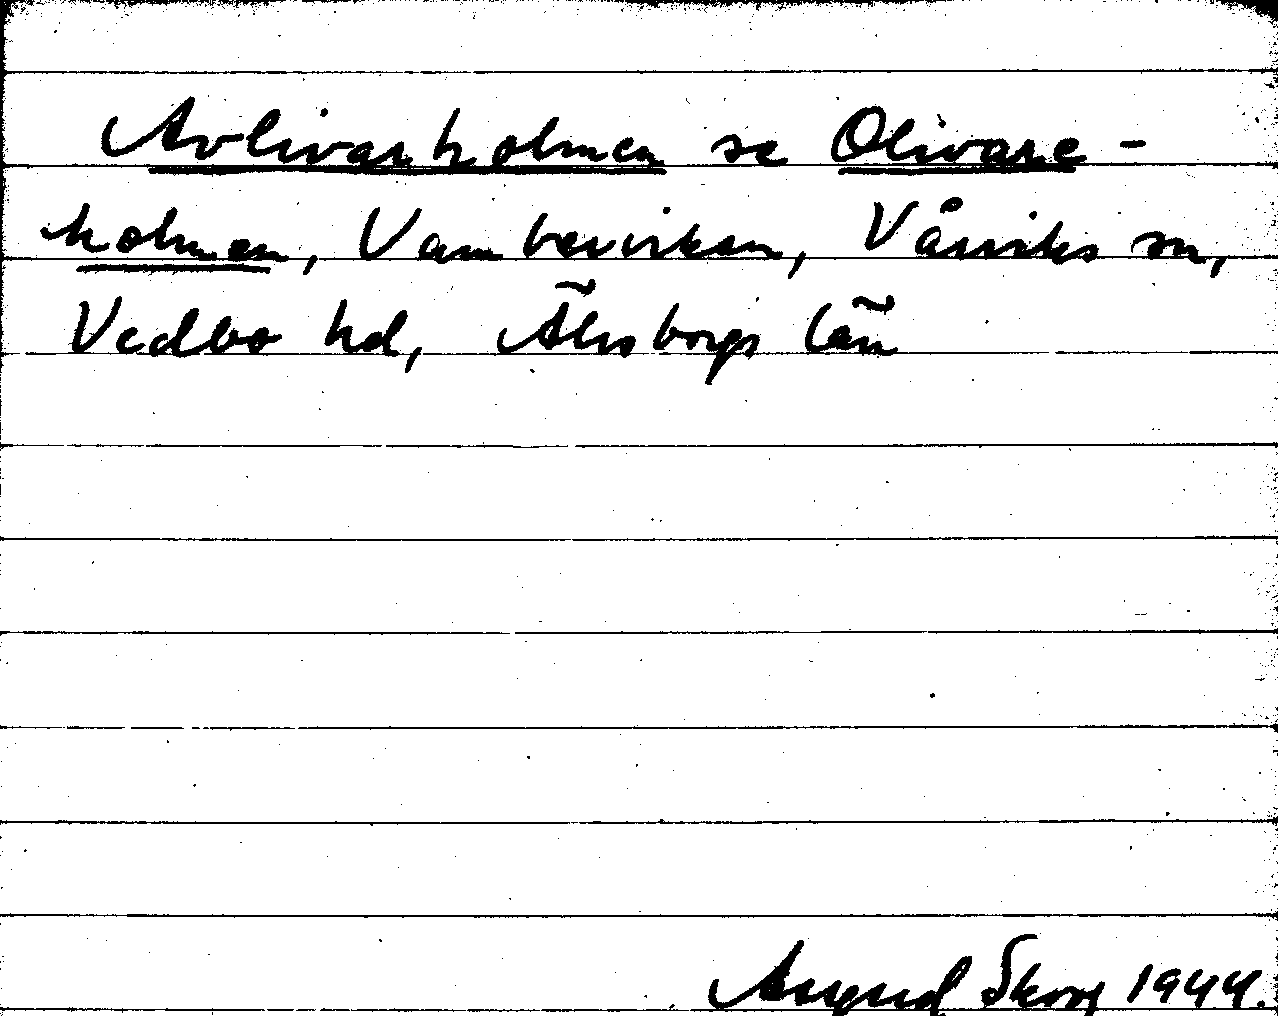 Avlivarholmen se Olivare-
holmen, Vambervik​en, Vårviks sn,
Vedbo hd, Älvsborgs län
Assgerd Skog 1944.